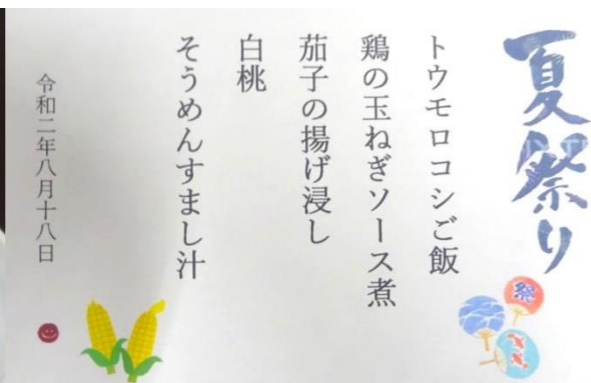 夏祭り
トウモロコシご飯
鶏の玉ねぎソース煮
茄子の揚げ浸し
白桃
そうめんすまし汁
令和二年八月十八日
祭